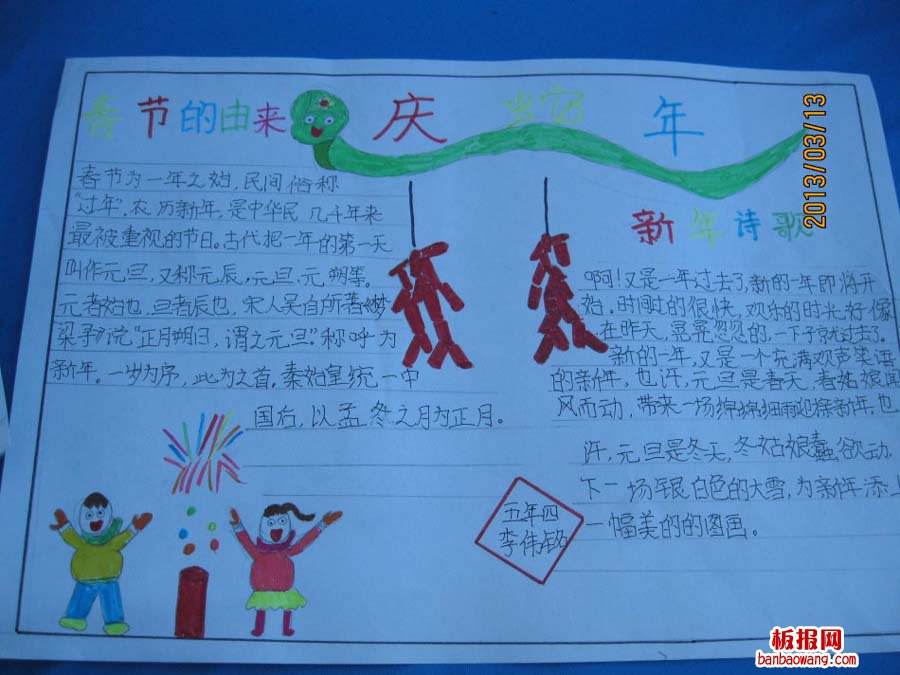 春节的由来
庆蛇年
2013/03/13
春节为一年之始，民间俗称
“过年”，农历新年，是中华民 几千年来
最被重视的节日。古代把一年的第一天
叫作元旦，又称元辰，元旦，元朔等。
元者始也，旦者辰也，宋人吴自所著梦
梁录》说“正月朔日，谓之元旦”。称呼为
新年。一岁为序，此为之首，秦始皇统一中
国后，以孟冬之月为正月。
新年诗歌
啊！又是一年过去了，新的一年即将开
始。时间过的很快，欢乐的时光好像
在昨天，晃晃忽忽的，一下子就过去了。
新的一年，又是一个充满欢声笑语
的新年，也许，元旦是春天，春姑娘闻
风而动，带来一场绵绵细雨迎接新年，也
许，元旦是冬天，冬姑娘蠢欲动，
下一场银白色的大雪，为新年添上
一幅美的的图画。
五年四
李伟铭
板报网
banbaowang.com